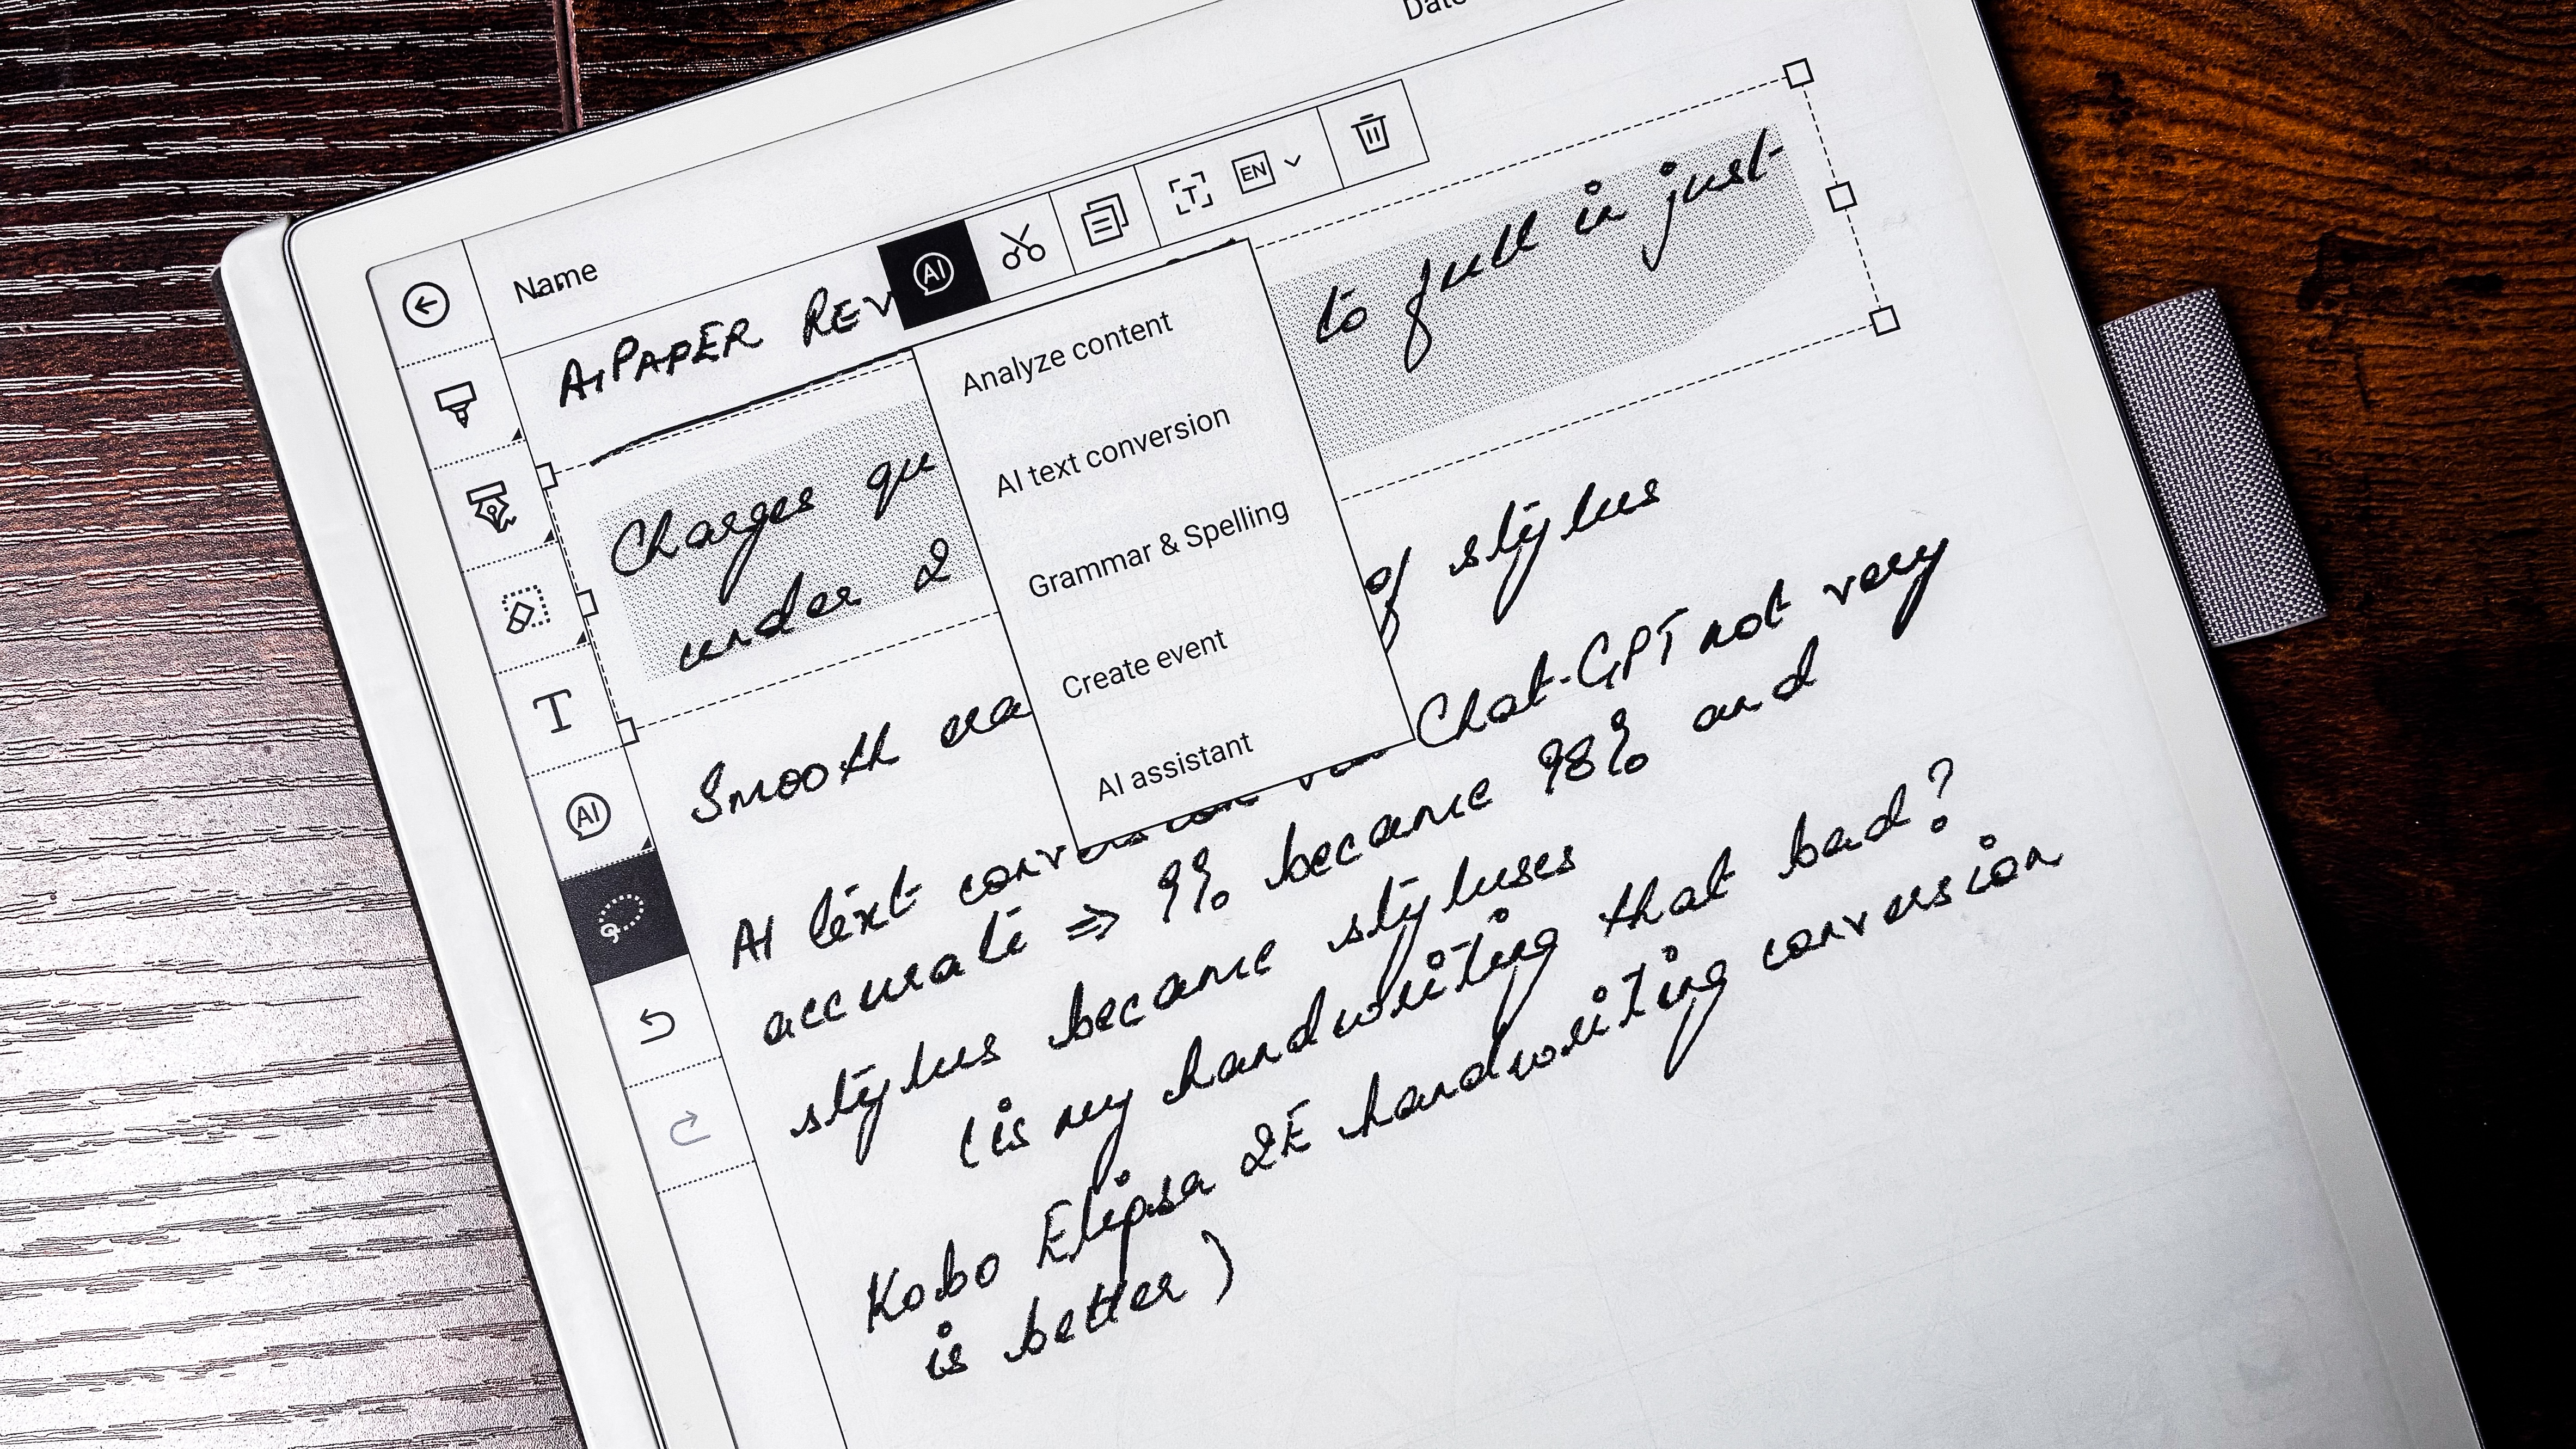 Date
Name
AI PAPER REV
AI
T
EN
Charges qu to full in just
under 2
Analyze content
AI text conversion
Grammar & Spelling
Create event
AI assistant
Smooth era of stylus
AI text conversion via Chat-GPT not very
accurate => 9% became 98% and
stylus became styluses
(is my handwriting that bad?
Kobo Elipsa 2E handwriting conversion
is better)
T
AI